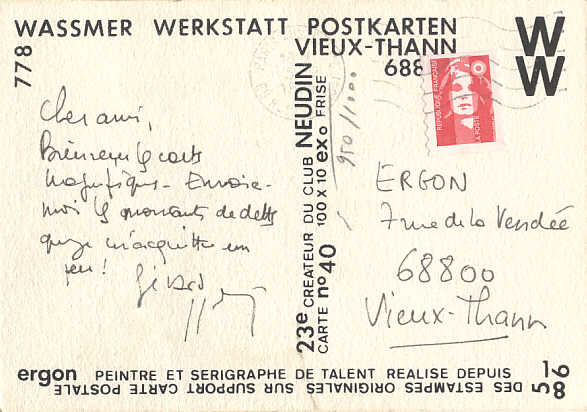 778 WASSMER WERKSTATT POSTKARTEN
VIEUX-THANN
688
W
W
REPUBLIQUE FRANÇAISE
LA POSTE
Cher ami,
Bien reçu les cartes
magnifiques. Envoie-
moi le montant de dette
que je m'acquitte un
peu!
Gérard
23e CREATEUR DU CLUB NEUDIN
CARTE nº 40 100 x 10 exo FRISE
950/1000
ERGON
7 rue de la Vendée
68800
Vieux-Thann
ergon PEINTRE ET SERIGRAPHE DE TALENT REALISE DEPUIS
DES ESTAMPES ORIGINALES SUR SUPPORT CARTE POSTALE